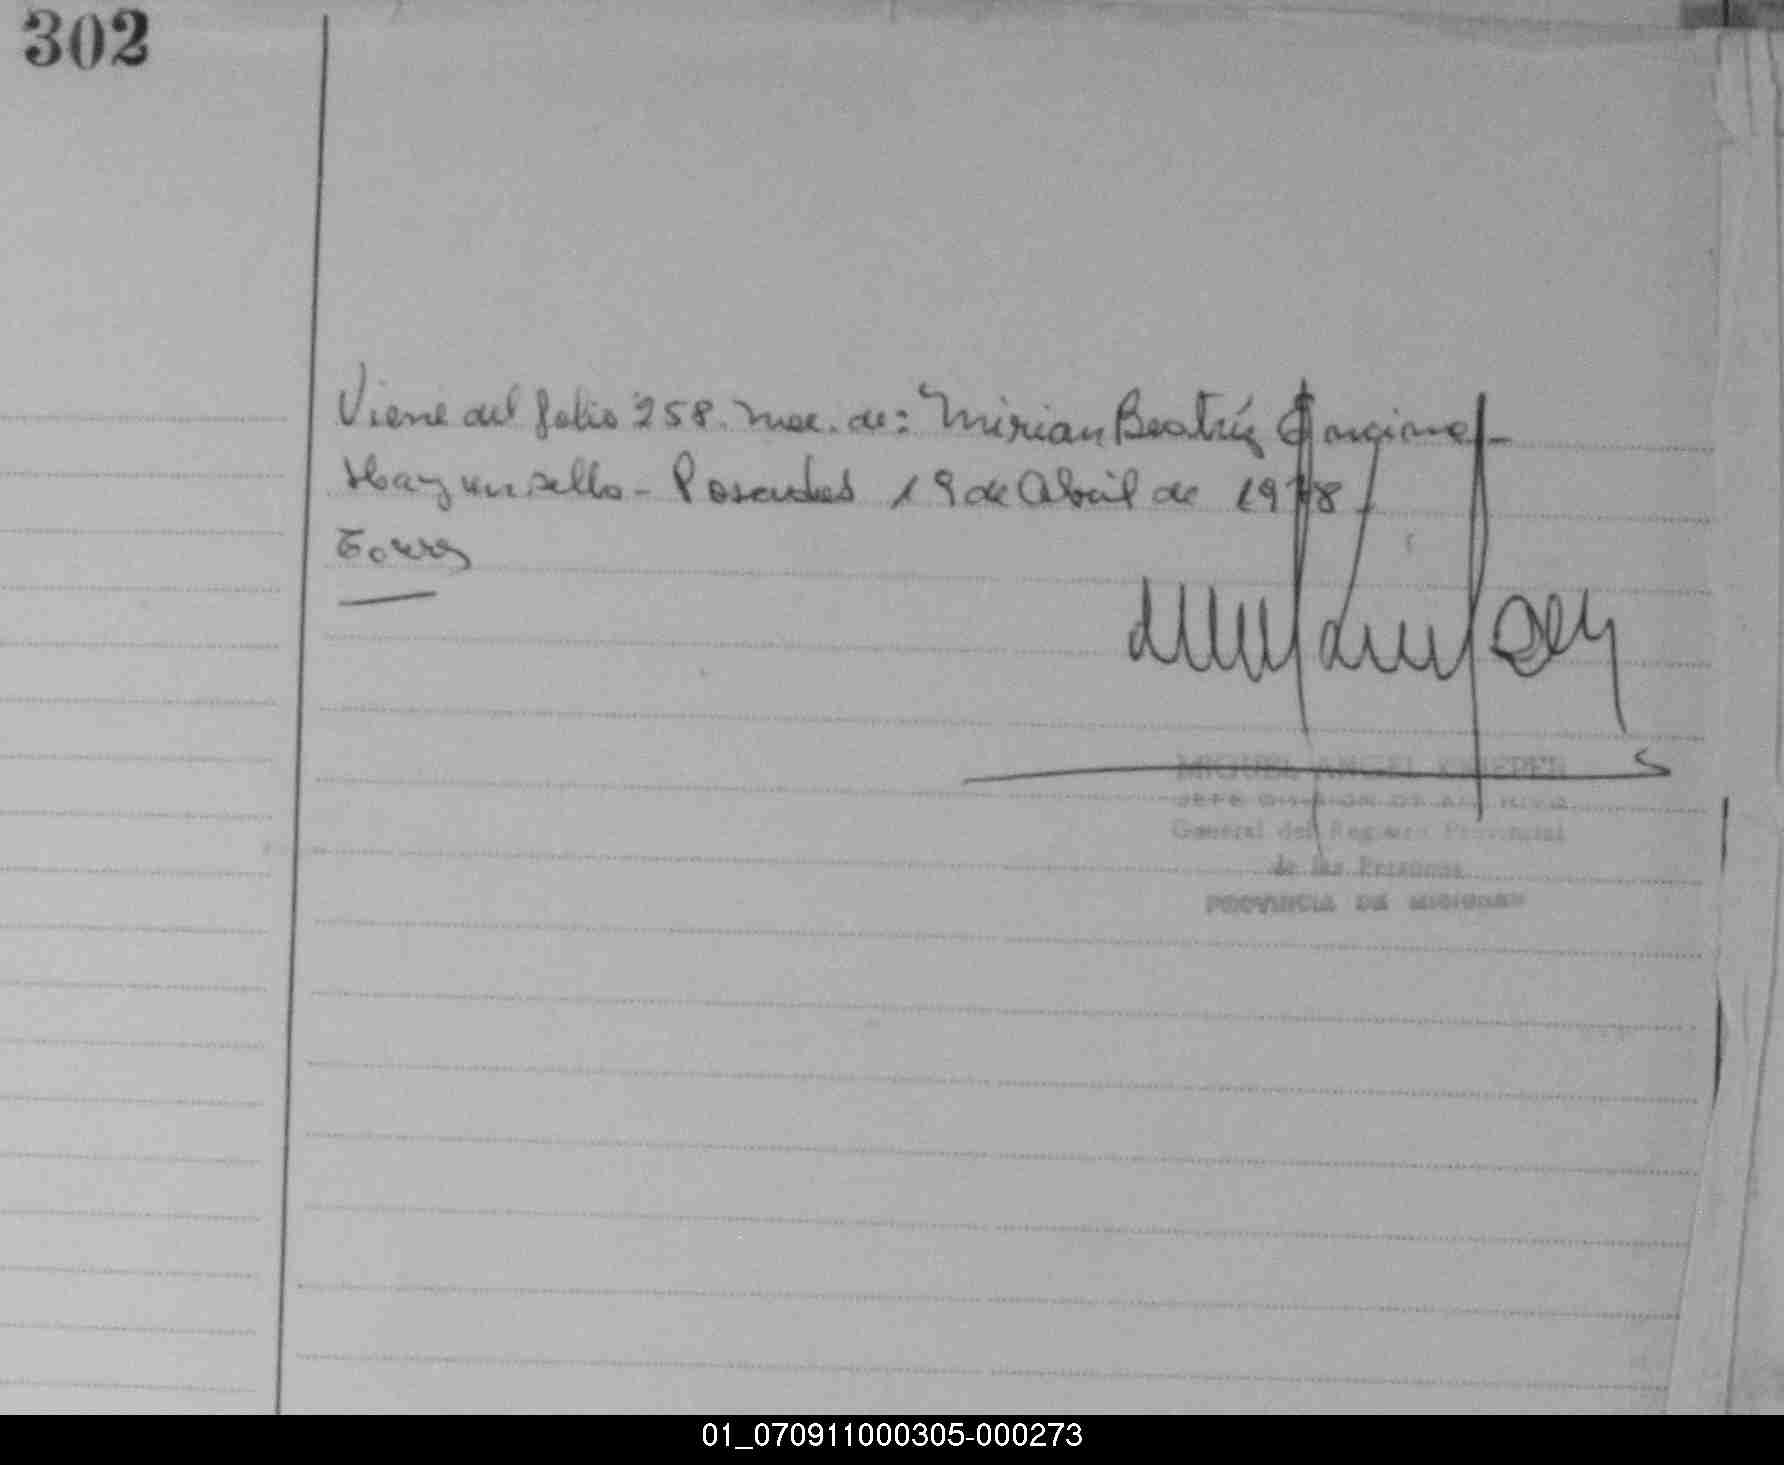 302
Viene del folio 258. Nac. de: Mirian Beatríz
Hay un sello - Posadas 19 de Abril de 1978
Torres
MIGUEL ANGEL
JEFE DIVISION DE ARCHIVO
General del Registro Provincial
de las Personas
PROVINCIA DE MISIONES
01_070911000305-000273